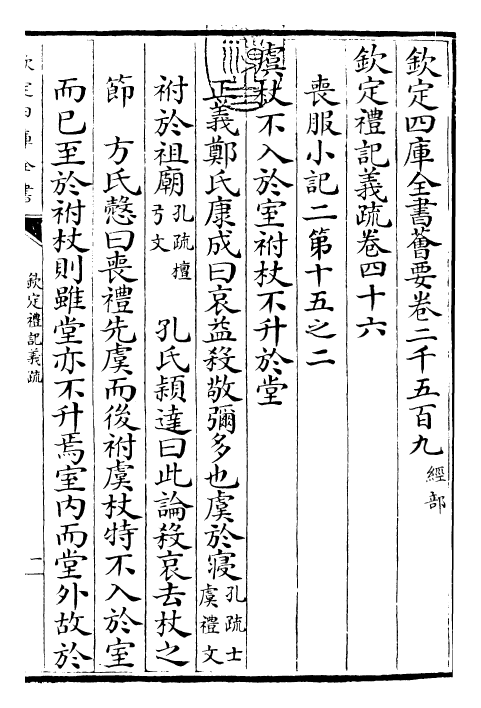 欽定四庫全書薈要卷二千五百九 經部
欽定禮記義疏卷四十六
喪服小記二第十五之二
虞杖不入於室祔杖不升於堂
正義鄭氏康成曰哀益殺敬彌多也虞於寢 孔疏士虞禮文
祔於祖廟 孔疏檀弓文 孔氏穎達曰此論殺哀去杖之
節 方氏慤曰喪禮先虞而後祔虞杖特不入於室
而已至於祔杖則雖堂亦不升焉室內而堂外故於
欽定四庫全書
欽定禮記義疏